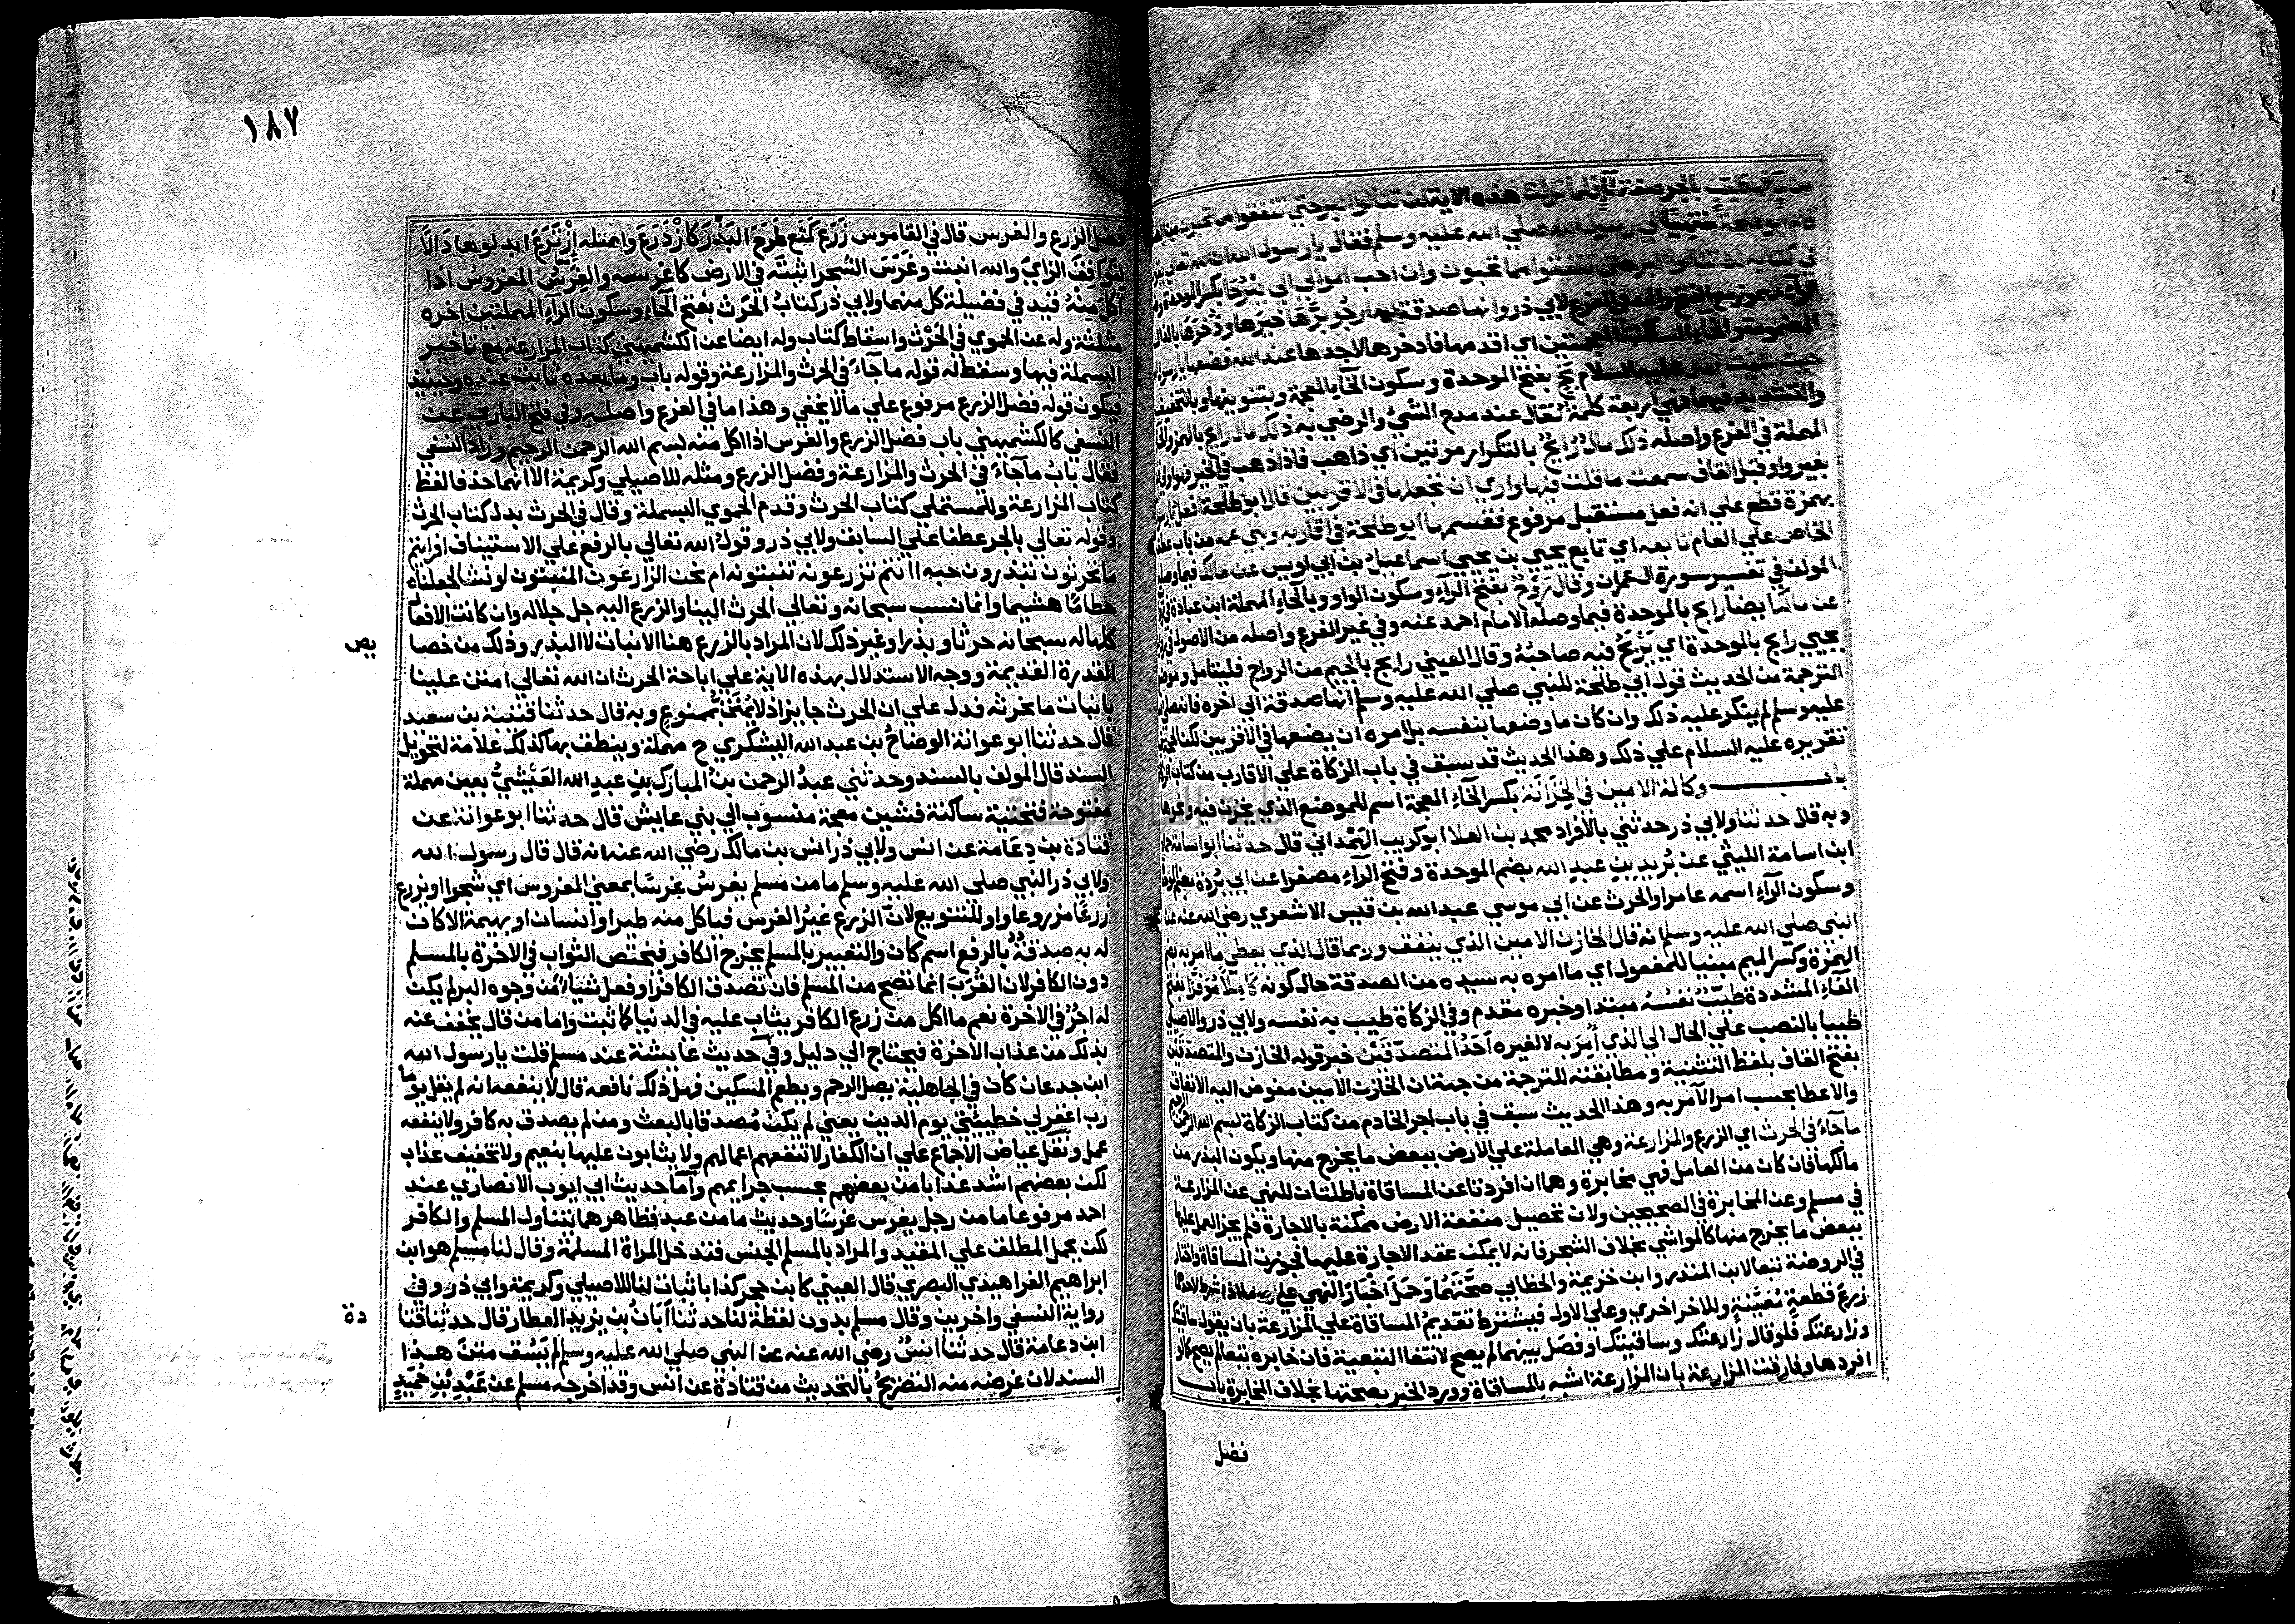 هذه الاية لن تنالوا البر حتي تنفقوا مما تحبون
رسول الله صلي الله عليه وسلم فقال يا رسول الله ان الله تعالي يقول
في كتابه لن تنالوا البر حتي تنفقوا مما تحبون وان احب اموالي الي
لابي ذر وانها صدقة لله ارجو برها خيرها وذخرها
اي اقدمها فادخرها لاجدها عند الله فضعها يا رسول الله
حيث شئت فقال عليه السلام بخ بفتح الموحدة وسكون الخاء المعجمة وبتنوينها وبالتخفيف
والتشديد فيهما فهي اربعة كلمة تقال عند مدح الشيء والرضي به ذلك مال رائح بالهمز والحاء
المهملة في الفرع واصله ذلك مال رائح بالتكرار مرتين اي ذاهب فاذا ذهب في الخير فهو اولي
بغير واو قبل القاف سمعت ما قلت فيها واري ان تجعلها في الاقربين قال ابو طلحة افعل يا رسول
بهمزة قطع علي انه فعل مستقبل مرفوع فقسمها ابو طلحة في اقاربه وبني عمه من باب عطف
الخاص علي العام تابعه اي تابع يحيي بن يحيي اسماعيل بن ابي اويس عن مالك فيما وصله
المولف في تفسير سورة ال عمران وقال روح بفتح الراء وسكون الواو وبالحاء المهملة ابن عبادة
عن مالك ايضا رابح بالموحدة فيما وصله الامام احمد عنه وفي غير الفرع واصله من الاصول
يحيي رابح بالموحدة اي يربح فيه صاحبه وقال العيني رايج بالجيم من الرواج فليتامل وموضع
الترجمة من الحديث قول ابي طلحة للنبي صلي الله عليه وسلم انها صدقة الي اخره فانه صلي الله
عليه وسلم لم ينكر عليه ذلك وان كان ما وضعها بنفسه بل امره ان يضعها في الاقربين لكن الحجة
تقريره عليه السلام علي ذلك وهذا الحديث قد سبق في باب الزكاة علي الاقارب من كتاب الزكاة
باب وكالة الامين في الخزانة بكسر الخاء المعجمة اسم للموضع الذي يخزن فيه وغيرها
وبه قال حدثنا ولابي ذر حدثني بالافراد محمد بن العلا ابو كريب الهمداني قال حدثنا ابو اسامة حماد
ابن اسامة الليثي عن بريد بن عبد الله بضم الموحدة وفتح الراء مصغرا عن ابي بردة بضم الموحدة
وسكون الراء اسمه عامر او الحرث عن ابي موسي عبد الله بن قيس الاشعري رضي الله عنه عن
النبي صلي الله عليه وسلم انه قال الخازن الامين الذي ينفق وربما قال الذي يعطي ما امر به بضم
الهمزة وكسر الميم مبنيا للمفعول اي ما امره به سيده من الصدقة حال كونه كاملا موفرا بفتح
الفاء المشددة طيب نفسه مبتدا وخبره مقدم وفي الزكاة طيب به نفسه ولابي ذر والاصيلي
طيبا بالنصب علي الحال الي الذي امر به لا لغيره احد المتصدقين خبر قوله الخازن والمتصدقين
بفتح القاف بلفظ التثنية ومطابقته للترجمة من جهة ان الخازن الامين مفوض اليه الانفاق
والاعطا بحسب امر الآمر به وهذا الحديث سبق في باب اجر الخادم من كتاب الزكاة بسم الله الرحمن الرحيم
ما جاء في الحرث اي الزرع والمزارعة وهي المعاملة علي الارض ببعض ما يخرج منها ويكون البذر من
مالكها فان كان من العامل فهي مخابرة وهما ان افردتا عن المساقاة باطلتان للنهي عن المزارعة
في مسلم وعن المخابرة في الصحيحين ولان تحصيل منفعة الارض ممكنة بالاجارة فلم يجز العمل عليها
ببعض ما يخرج منها كالمواشي بخلاف الشجر فانه لا يمكن عقد الاجارة عليها فجوزت المساقاة واختار
في الروضة تبعا لابن المنذر وابن خزيمة والخطابي صحتهما وحمل اخبار النهي علي ما اذا شرط لاحدهما
زرع قطعة معينة وللاخر اخري وعلي الاول فيشترط تقديم المساقاة علي المزارعة بان يقول ساقيتك
وزارعتك فلو قال زارعتك وساقيتك او فصل بينهما لم يصح لانتفا التبعية فان خابره تبعا لم يصح كما لو
افردها وفارقت المزارعة بان المزارعة اشبه بالمساقاة وورد الخبر بصحتها بخلاف المخابرة باب
فضل
١٨٧
فضل الزرع والغرس قال في القاموس زرع كمنع طرح البذر كازدرع واصله ازترع ابدلوها دالا
لتوافق الزاي والله انبت وغرس الشجر اثبته في الارض كاغرسه والغرس المغروس اذا
اكل منه قيد في فضيلة كل منهما ولابي ذر كتاب الحرث بفتح الحاء وسكون الراء المهملتين اخره
مثلثة وله عن الحموي في الحرث واسقاط كتاب وله ايضا عن الكشميهني كتاب المزارعة مع تاخير
البسملة فيها وسقط له قوله ما جاء في الحرث والمزارعة وقوله باب وما بعده ثابت عنده وحينئذ
فيكون قوله فضل الزرع مرفوع علي ما لا يخفي وهذا ما في الفرع واصله وفي فتح الباري عن
النسفي كالكشميهني باب فضل الزرع والغرس اذا اكل منه بسم الله الرحمن الرحيم وزاد النسفي
فقال باب ما جاء في الحرث والمزارعة وفضل الزرع ومثله للاصيلي وكريمة الا انهما حذفا لفظ
كتاب المزارعة وللمستملي كتاب الحرث وقدم الحموي البسملة وقال في الحرث بدل كتاب الحرث
وقوله تعالي بالجر عطفا علي السابق ولابي ذر وقول الله تعالي بالرفع علي الاستيناف افرايتم
ما تحرثون تبذرون حبه اانتم تزرعونه تنبتونه ام نحن الزارعون المنبتون لو نشا لجعلناه
حطاما هشيما وانما نسب سبحانه وتعالي الحرث الينا والزرع اليه جل جلاله وان كانت الافعال
كلها له سبحانه حرثا وبذرا وغير ذلك لان المراد بالزرع هنا الانبات لا البذر وذلك من خصا
يص
القدرة القديمة ووجه الاستدلال بهذه الاية علي اباحة الحرث ان الله تعالي امتن علينا
بانبات ما نحرثه فدل علي ان الحرث جايز اذ لا يمتن بممنوع وبه قال حدثنا قتيبة بن سعيد
قال حدثنا ابو عوانة الوضاح بن عبد الله اليشكري ح مهملة وينطق بها كذلك علامة لتحويل
السند قال المولف بالسند وحدثني عبد الرحمن بن المبارك بن عبد الله العيشي بعين مهملة
مفتوحة فتحتية ساكنة فشين معجمة منسوب الي بني عايش قال حدثنا ابو عوانة عن
قتادة بن دعامة عن انس ولابي ذر انس بن مالك رضي الله عنه انه قال قال رسول الله
ولابي ذر النبي صلي الله عليه وسلم ما من مسلم يغرس غرسا بمعني المغروس اي شجرا او يزرع
زرعا مزروعا واو للتنويع لان الزرع غير الغرس فياكل منه طير او انسان او بهيمة الا كان
له به صدقة بالرفع اسم كان والتعبير بالمسلم يخرج الكافر فيختص الثواب في الاخرة بالمسلم
دون الكافر لان القرب انما تصح من المسلم فان تصدق الكافر او فعل شيئا من وجوه البر لم يكن
له اجر في الاخرة نعم ما اكل من زرع الكافر يثاب عليه في الدنيا كما ثبت واما من قال يخفف عنه
بذلك من عذاب الاخرة فيحتاج الي دليل وفي حديث عايشة عند مسلم قلت يا رسول الله
ابن جدعان كان في الجاهلية يصل الرحم ويطعم المسكين فهل ذلك نافعه قال لا ينفعه انه لم يقل يوما
رب اغفر لي خطيئتي يوم الدين يعني لم يكن مصدقا بالبعث ومن لم يصدق به كافر ولا ينفعه
عمل ونقل عياض الاجماع علي ان الكفار لا تنفعهم اعمالهم ولا يثابون عليها بنعيم ولا تخفيف عذاب
لكن بعضهم اشد عذابا من بعضهم بحسب جرايمهم واما حديث ابي ايوب الانصاري عند
احمد مرفوعا ما من رجل يغرس غرسا وحديث ما من عبد فظاهرهما يتناول المسلم والكافر
لكن يحمل المطلق علي المقيد والمراد بالمسلم الجنس فتدخل المراة المسلمة وقال لنا مسلم هو ابن
ابراهيم الفراهيدي البصري قال العيني كابن حجر كذا باثبات لنا للاصيلي وكريمة وابي ذر وفي
رواية النسفي واخرين وقال مسلم بدون لفظة لنا حدثنا ابان بن يزيد العطار قال حدثنا قتا
دة
ابن دعامة قال حدثنا انس رضي الله عنه عن النبي صلي الله عليه وسلم لم يسق متن هذا
السند لان غرضه منه التصريح بالتحديث من قتادة عن انس وقد اخرجه مسلم عن عبد بن حميد